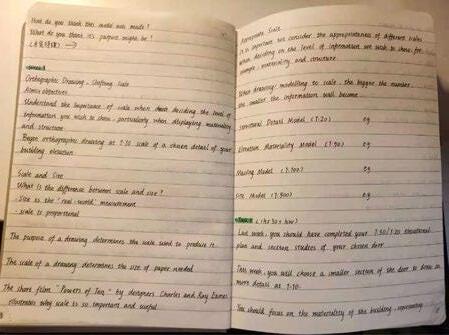 How do you think this model was made?
What do you think its purpose might be?
Orthographic Drawing - Shifting Scale
Aims & objectives
Understand the importance of scale when deciding the level of
information you wish to show, particularly when displaying materiality
and structure
Begin orthographic drawing at 1:10 scale of a chosen detail of your
building elevation
Scale and Size
What is the difference between scale and size?
- Size is the "real-world" measurement
- scale is proportional
The purpose of a drawing determines the scale used to produce it
The scale of a drawing determines the size of paper needed
The short film "Powers of Ten" by designers Charles and Ray Eames
illustrates why scale is so important and useful
Appropriate Scale
It is important we consider the appropriateness of different scales
when deciding on the level of information we wish to show, for
example, materiality and structure
When drawing / modelling to scale, the bigger the number,
the smaller the information will become
Structural Detail Model (1:20) eg
Elevation Materiality Model (1:50) eg
Massing Model (1:200) eg
Site Model (1:500) eg
Last week, you should have completed your 1:50/1:20 elevational
plan and section studies of your chosen door
This week, you will choose a smaller section of the door to draw in
more detail at 1:10.
You should focus on the materiality of the building, representing